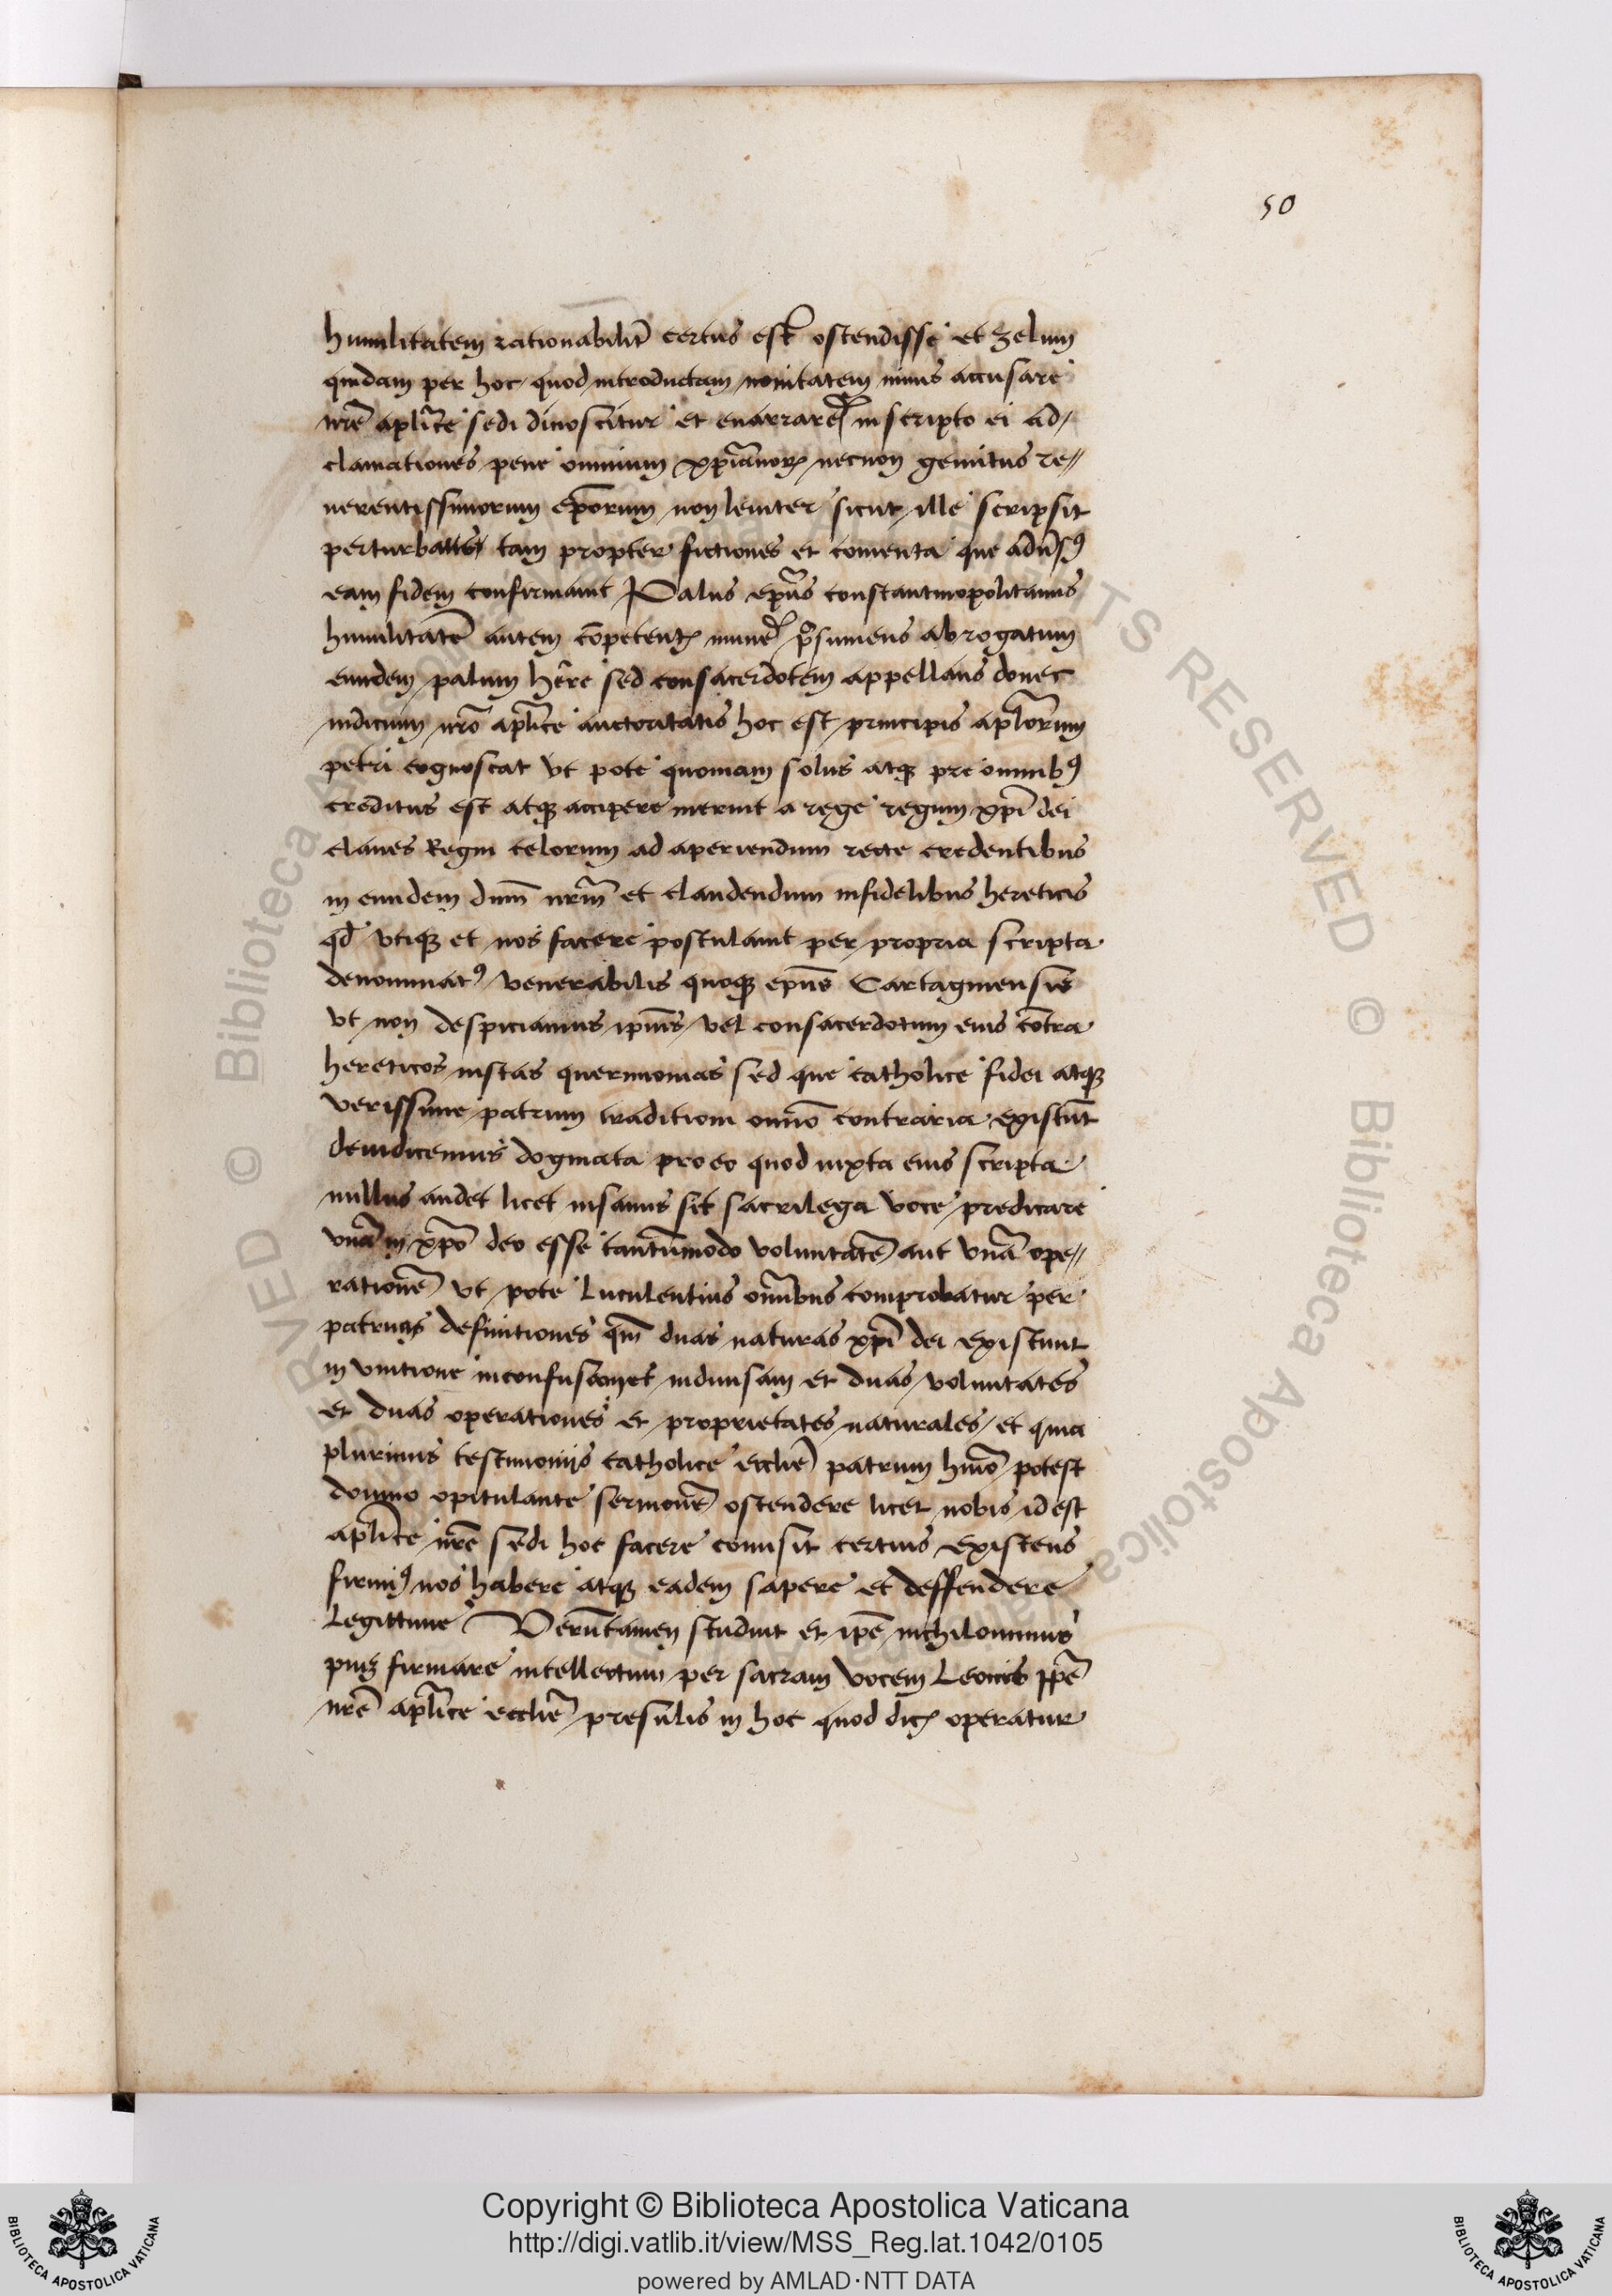 50
humilitatem rationabilit̃ certus est ostendisse et zelum
quidam per hoc quod introductam nouitatem nimis accusare
nr̃e aplĩce sedi dinoscitur et enarrare in scripto ei ad/
clamationes pene omnium xp̃ianoꝝ necnon gemitus re//
uerentissimorum ep̃orum non leuiter sicut ille scripsit
perturbantes tam propter fictiones et comenta que adũsꝰ
eam fidem confirmauit Palus ep̃us constantinopolitanus
humilitatẽ autem cõpetentꝭ p̃sumens abrogatum
eundem palum hẽre sed consacerdotem appellans donec
iudicium nr̃o aplĩce auctoritatis hoc est principis aplõrum
petri cognoscat vt pote quoniam solus atqꝫ pre omnibꝰ
creditus est atqꝫ accipere meruit a rege regum xp̃i dei
claues Regni celorum ad aperiendum recte credentibus
in eundem dnm̃ nrm̃ et claudendum infidelibus hereticis
qd̃ vtiqꝫ et nos facere postulauit per propria scripta
denominatꝰ venerabilis quoqꝫ ep̃us Cartaginensis
vt non despiciamus ipĩus vel consacerdotum eius cõtra
hereticos iustas querimonias sed que catholice fidei atqꝫ
verissime patrum traditioni omĩo contraria existũt
deiudicemus dogmata pro eo quod iuxta eius scripta
nullus audet licet insanus sit sacrilega voce predicare
vnã in xp̃o deo esse tantũmodo voluntatẽ aut vnã ope//
rationẽ vt pote luculentius omĩbus comprobatur per
patrum definitiones qm̃ duas naturas xp̃i dei existunt
in vnitione inconfusam et indiuisam et duas voluntates
et duas operationes et proprietates naturales et quia
plurimis testimonijs catholice ecclie̾ patrum hmõ potest
domino opitulante sermonẽ ostendere licet nobis id est
aplĩce nr̃e sedi hoc facere comisit certius existens
firmiꝰ nos habere atqꝫ eadem sapere et deffendere
Legittime Verũtamen studuit et ip̃e nichilominus
firmare intellectum per sacram vocem Leonis
nr̃e aplĩce ecclẽ presulis in hoc quod dicꝭ operatur
Copyright © Biblioteca Apostolica Vaticana
http://digi.vatlib.it/view/MSS_Reg.lat.1042/0105
powered by AMLAD·NTT DATA